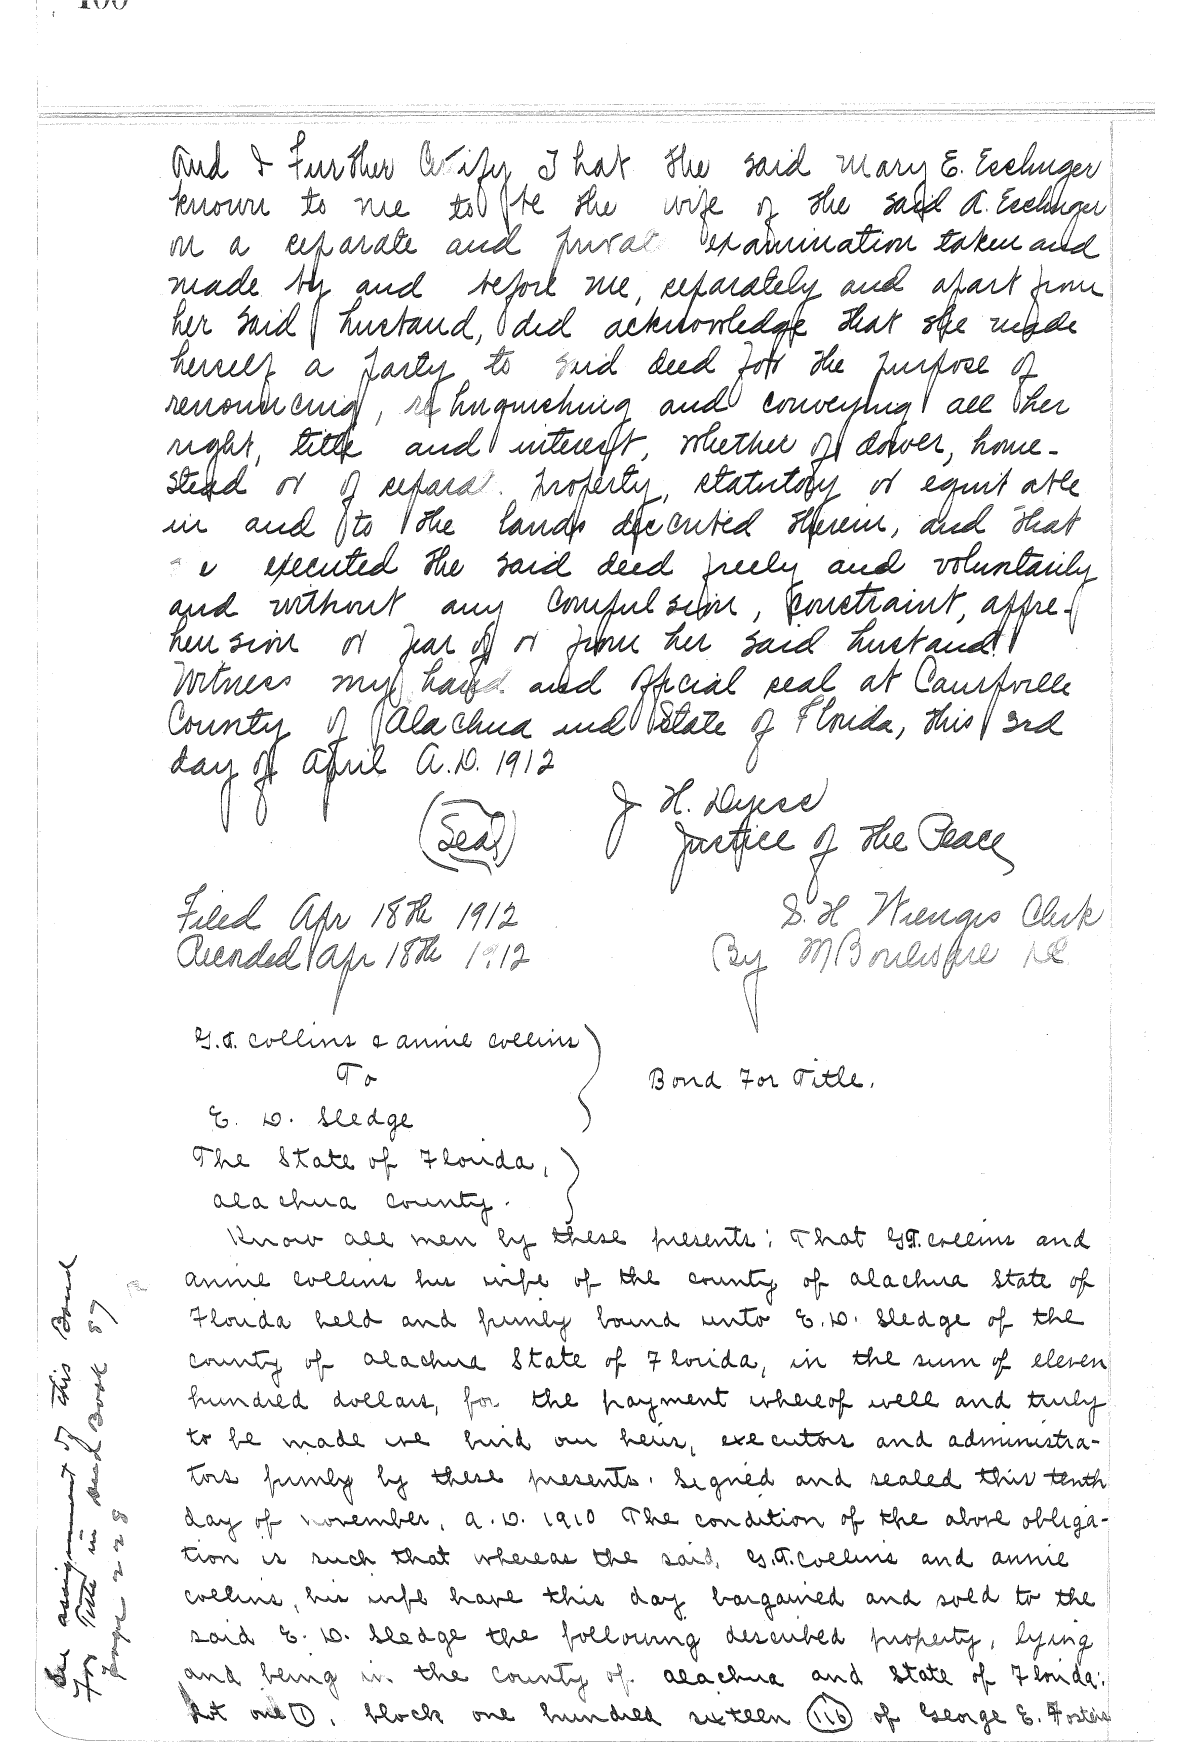 And I Further Certify That the said Mary E. Eschinger
known to me to be the wife of the said A. Eschinger
on a separate and privat examination taken and
made by and before me, separately and apart from
her said husband, did acknowledge that she made
herself a party to said deed for the purpose of
renouncing, relinquishing and conveying all her
right, title and interest, whether of dower, home-
stead or of separa property, statutory or equitable
in and to the lands described therein, and that
e executed the said deed freely and voluntarily
and without any compulsion, constraint, appre-
hension or fear of or from her said husband
Witness my hand and official seal at
County of Alachua and State of Florida, this 3rd
day of April A.D. 1912
J H. Dyess
(Seal)
Justice of the Peace
Filed Apr 18th 1912
S. H Wienges Clerk
Recorded Apr 18th 1912
By M DC
G.T. Collins & Annie Collins
To
Bond For Title.
E. D. Sledge
The State of Florida,
Alachua County.
Know all men by these presents: That G.T. Collins and
Annie Collins his wife of the county of Alachua State of
Florida held and firmly bound unto E.D. Sledge of the
county of Alachua State of Florida, in the sum of eleven
hundred dollars, for the payment whereof well and truly
to be made we bind our heirs, executors and administra-
tors firmly by these presents. Signed and sealed this tenth
day of November, A.D. 1910 The condition of the above obliga-
tion is such that whereas the said, G.T. Collins and Annie
Collins, his wife have this day bargained and sold to the
said E. D. Sledge the following described property, lying
and being in the County of Alachua and State of Florida:
Lot one (1), block one hundred sixteen (116) of George E. Fosters
See assignment of this Bond
For Title in Deed Book 87
page 228